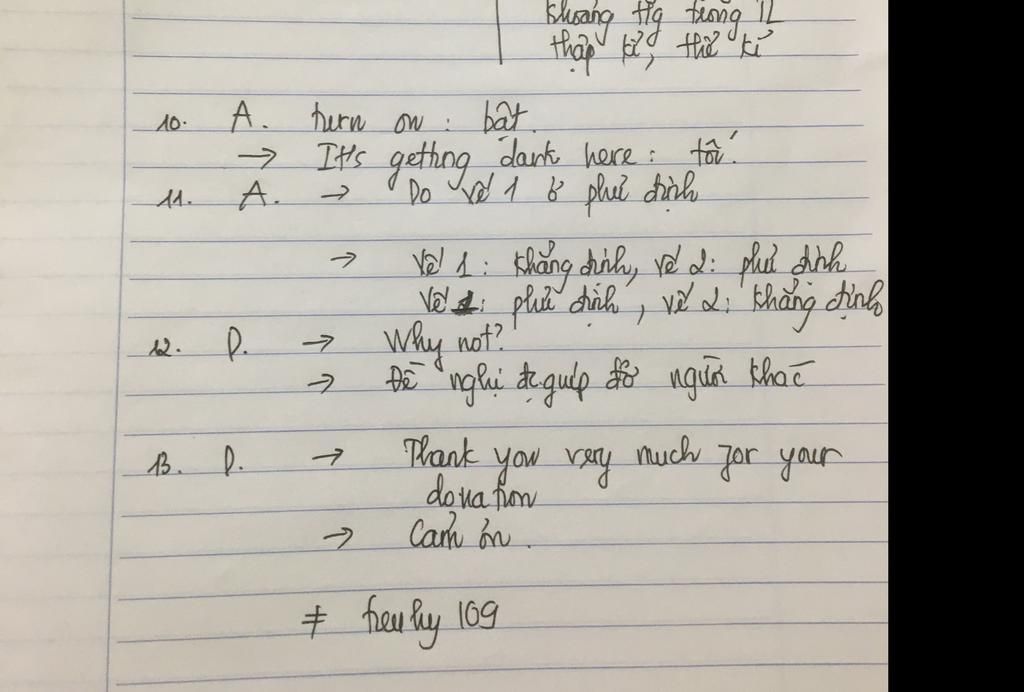 khoảng tg trong TL
thập kỉ, thế kỉ
10. A. turn on : bật.
→ It's getting dark here : tối.
11. A. → Do vế 1 ở phủ định
→ Vế 1 : khẳng định, vế 2 : phủ định
Vế 1 : phủ định, vế 2 : khẳng định
12. D. → Why not?
→ Đề nghị đc giúp đỡ người khác
13. D. → Thank you very much for your
donation
→ Cảm ơn.
≠ freuhy 109